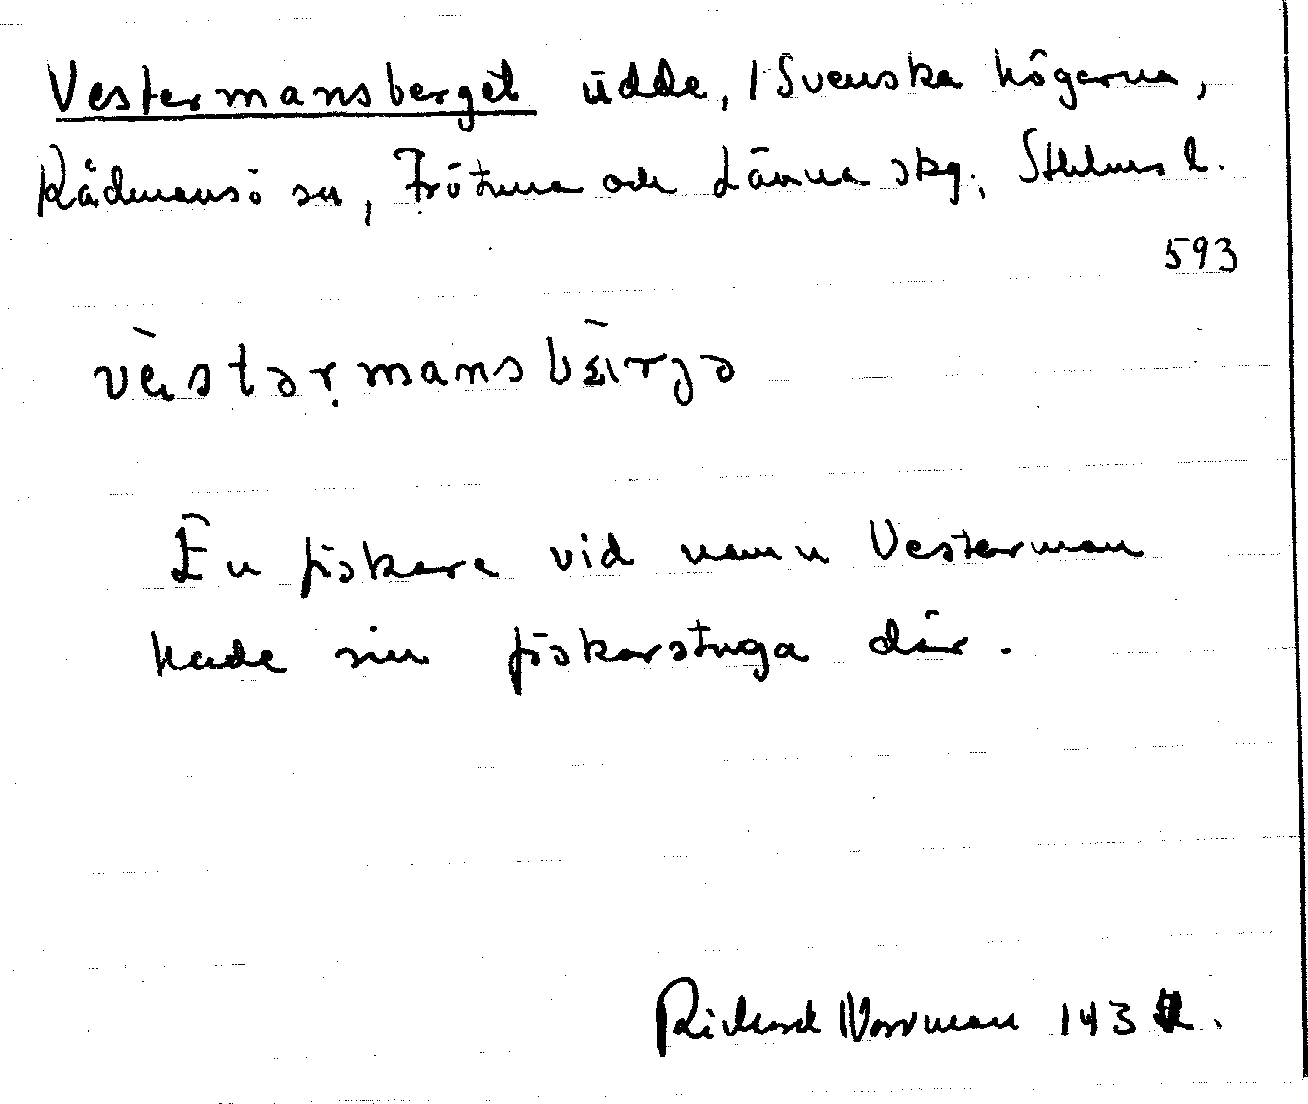 Vestermansberget udde, / Svenska högarna,
Rådmansö sn, Frötuna och Länna skg, Sthlms l.
593
vèstərmansbærjə
En fiskare vid namn Vesterman
hade sin fiskarstuga där.
Richard Norrman 143